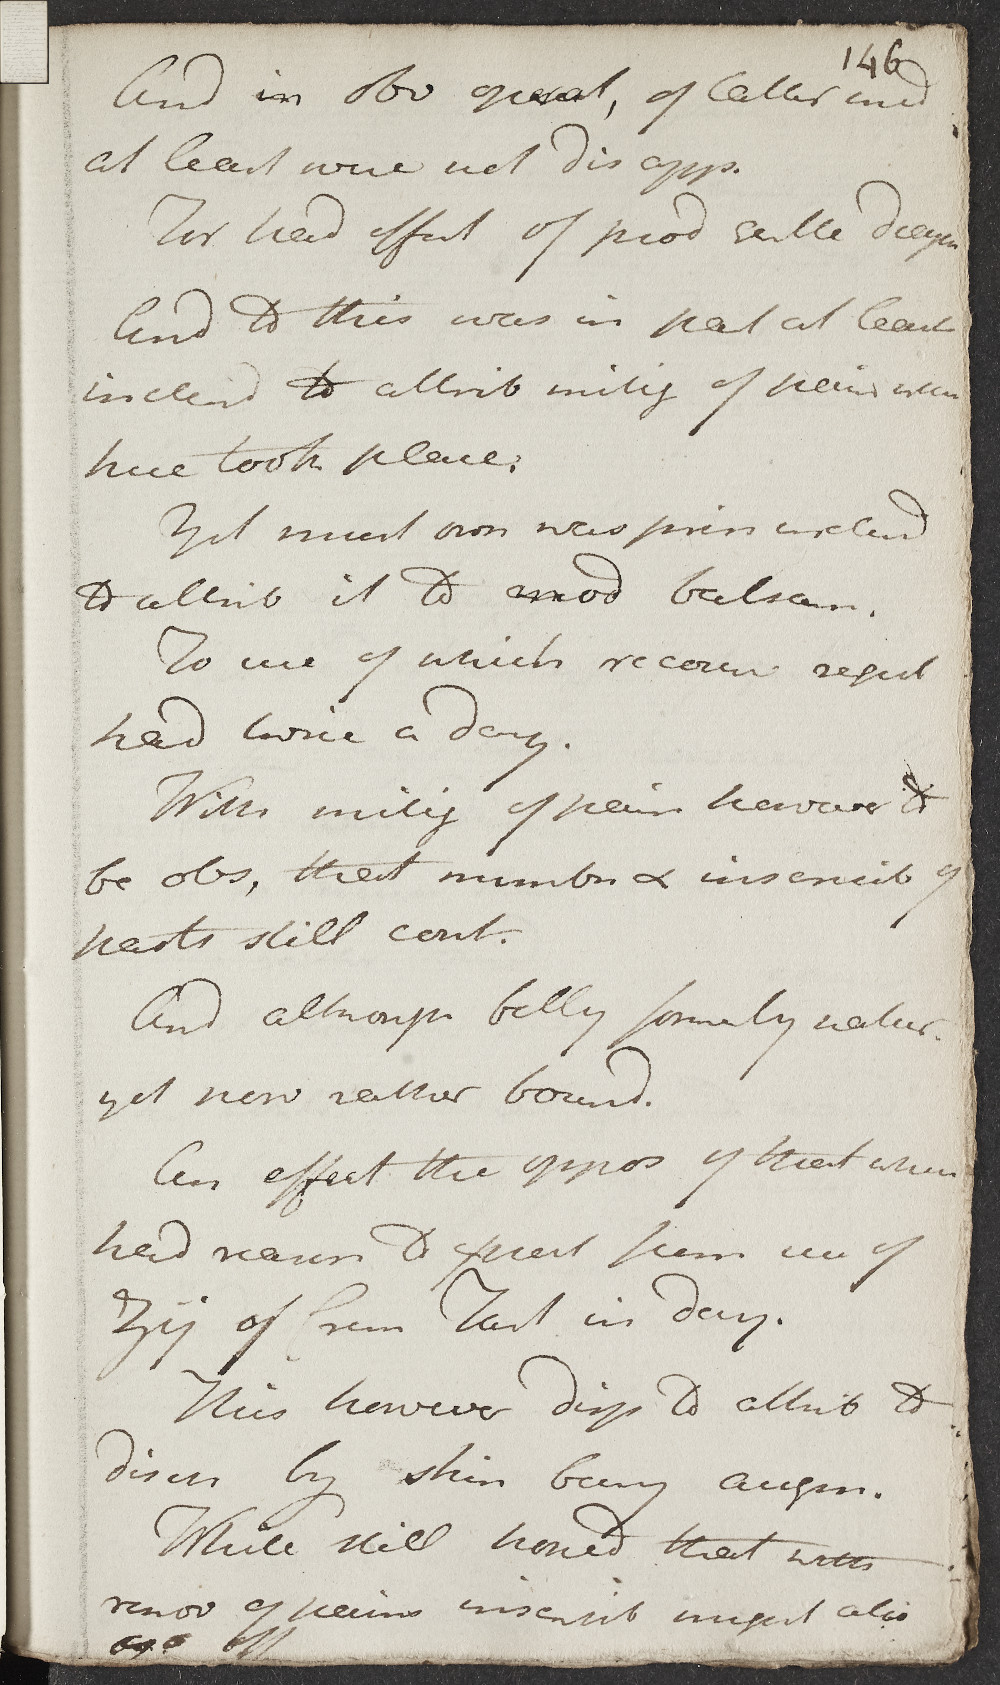 146
And in obv operat, of latter med
at least were not disapp.
For had effect of prod gentle diaph
And to this was in part at least
inclined to attrib mitig of pain when
hue took place.
Yet must own was prin inclend
to attrib it to anod balsam.
To use of which recour regul
had twice a day.
With mitig of pain however to
be obs, that numbn & insensib of
parts still cont.
And although belly formerly natur.
yet now rather bound.
An effect the oppos of that when
had reason to expect from use of
ʒij of Crem Tart in day.
This however disp to attrib to
discn by skin being augm.
While still hoped that with
remov of pains insensib might also
go off